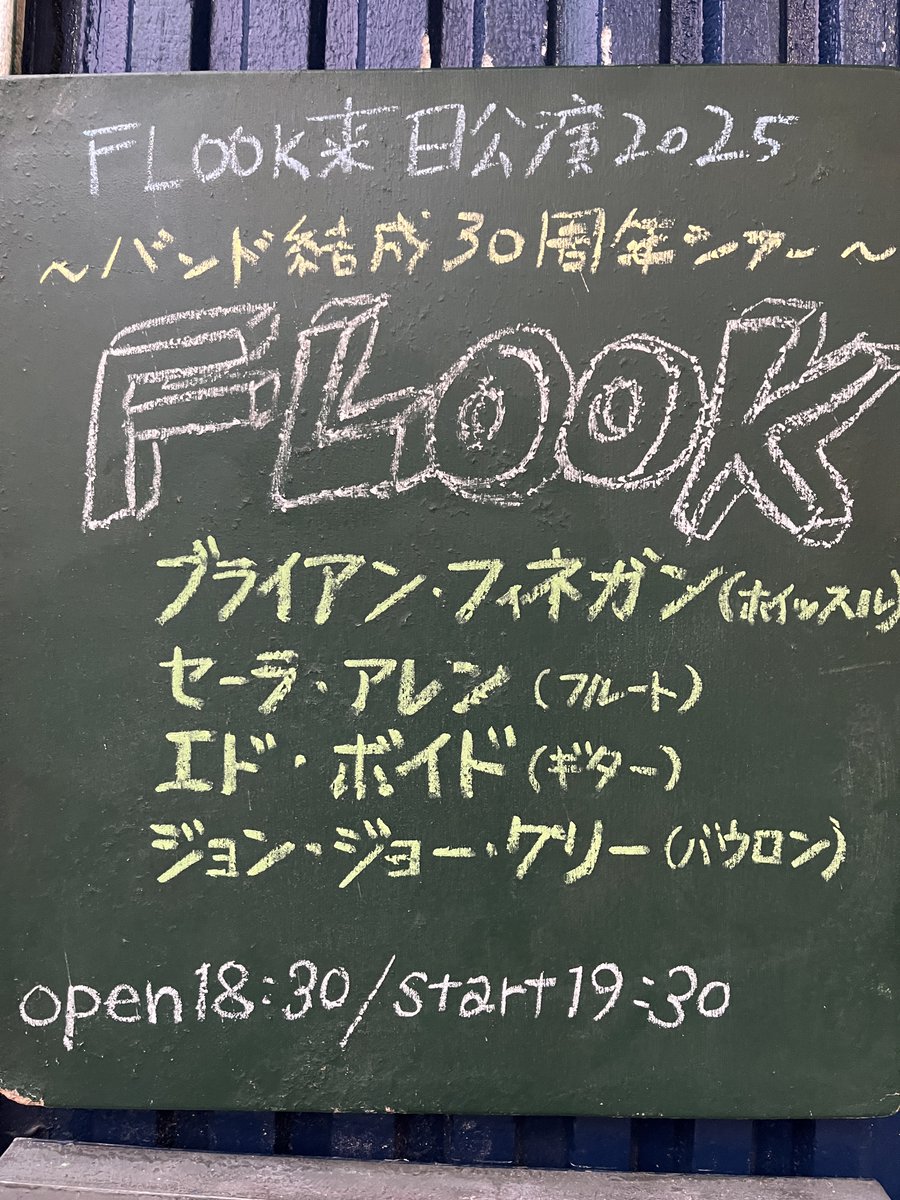 FLOOK来日公演2025
～バンド結成30周年ツアー～
FLOOK
ブライアン・フィネガン(ホイッスル)
セーラ・アレン(フルート)
エド・ボイド(ギター)
ジョン・ジョー・ケリー(バウロン)
open18:30/start19:30